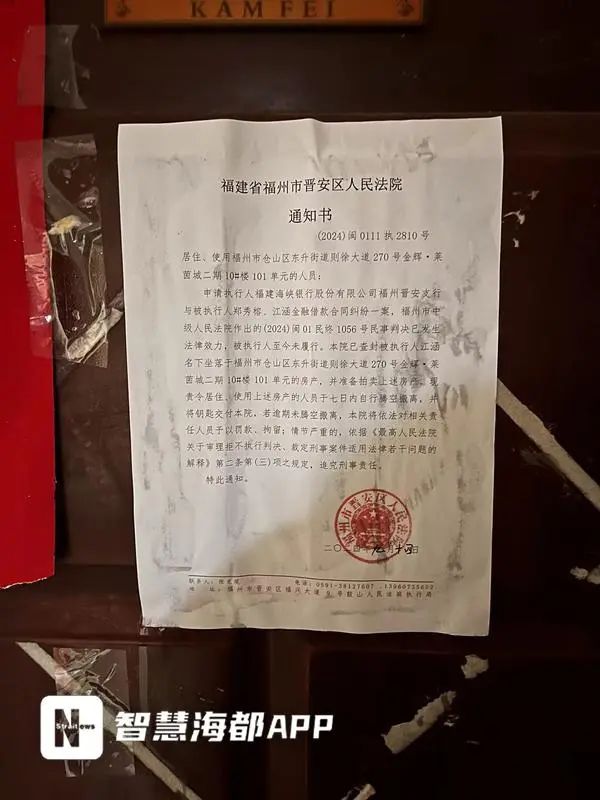 KAM FEI
福建省福州市晋安区人民法院
通知书
(2024)闽 0111 执 2810 号
居住、使用福州市仓山区东升街道则徐大道 270 号金辉·莱
茵城二期 10#楼 101 单元的人员:
申请执行人福建海峡银行股份有限公司福州晋安支行
与被执行人郑秀榕、江涵金融借款合同纠纷一案,福州市中
级人民法院作出的(2024)闽 01 民终 1056 号民事判决已发生
法律效力,被执行人至今未履行。本院已查封被执行人江涵
名下坐落于福州市仓山区东升街道则徐大道 270 号金辉·莱
茵城二期 10#楼 101 单元的房产,并准备拍卖上述房产。现
责令居住、使用上述房产的人员于七日内自行腾空搬离,并
将钥匙交付本院,若逾期未腾空搬离,本院将依法对相关责
任人员予以罚款、拘留;情节严重的,依据《最高人民法院
关于审理拒不执行判决、裁定刑事案件适用法律若干问题的
解释》第二条第(三)项之规定,追究刑事责任。
特此通知。
福州市晋安区人民法院
二〇二四年 月 日
联系人: 电话:0591-38127607
地 址:福州市晋安区福兴大道 9 号鼓山人民法庭执行局
N
Straitnews
智慧海都APP